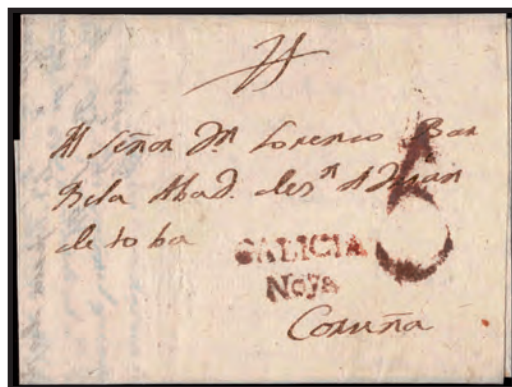 Al Señor Dn Lorenzo Bar
Rela Abad. de sn Adrian
de toba
6
GALICIA
Noya
Coruña